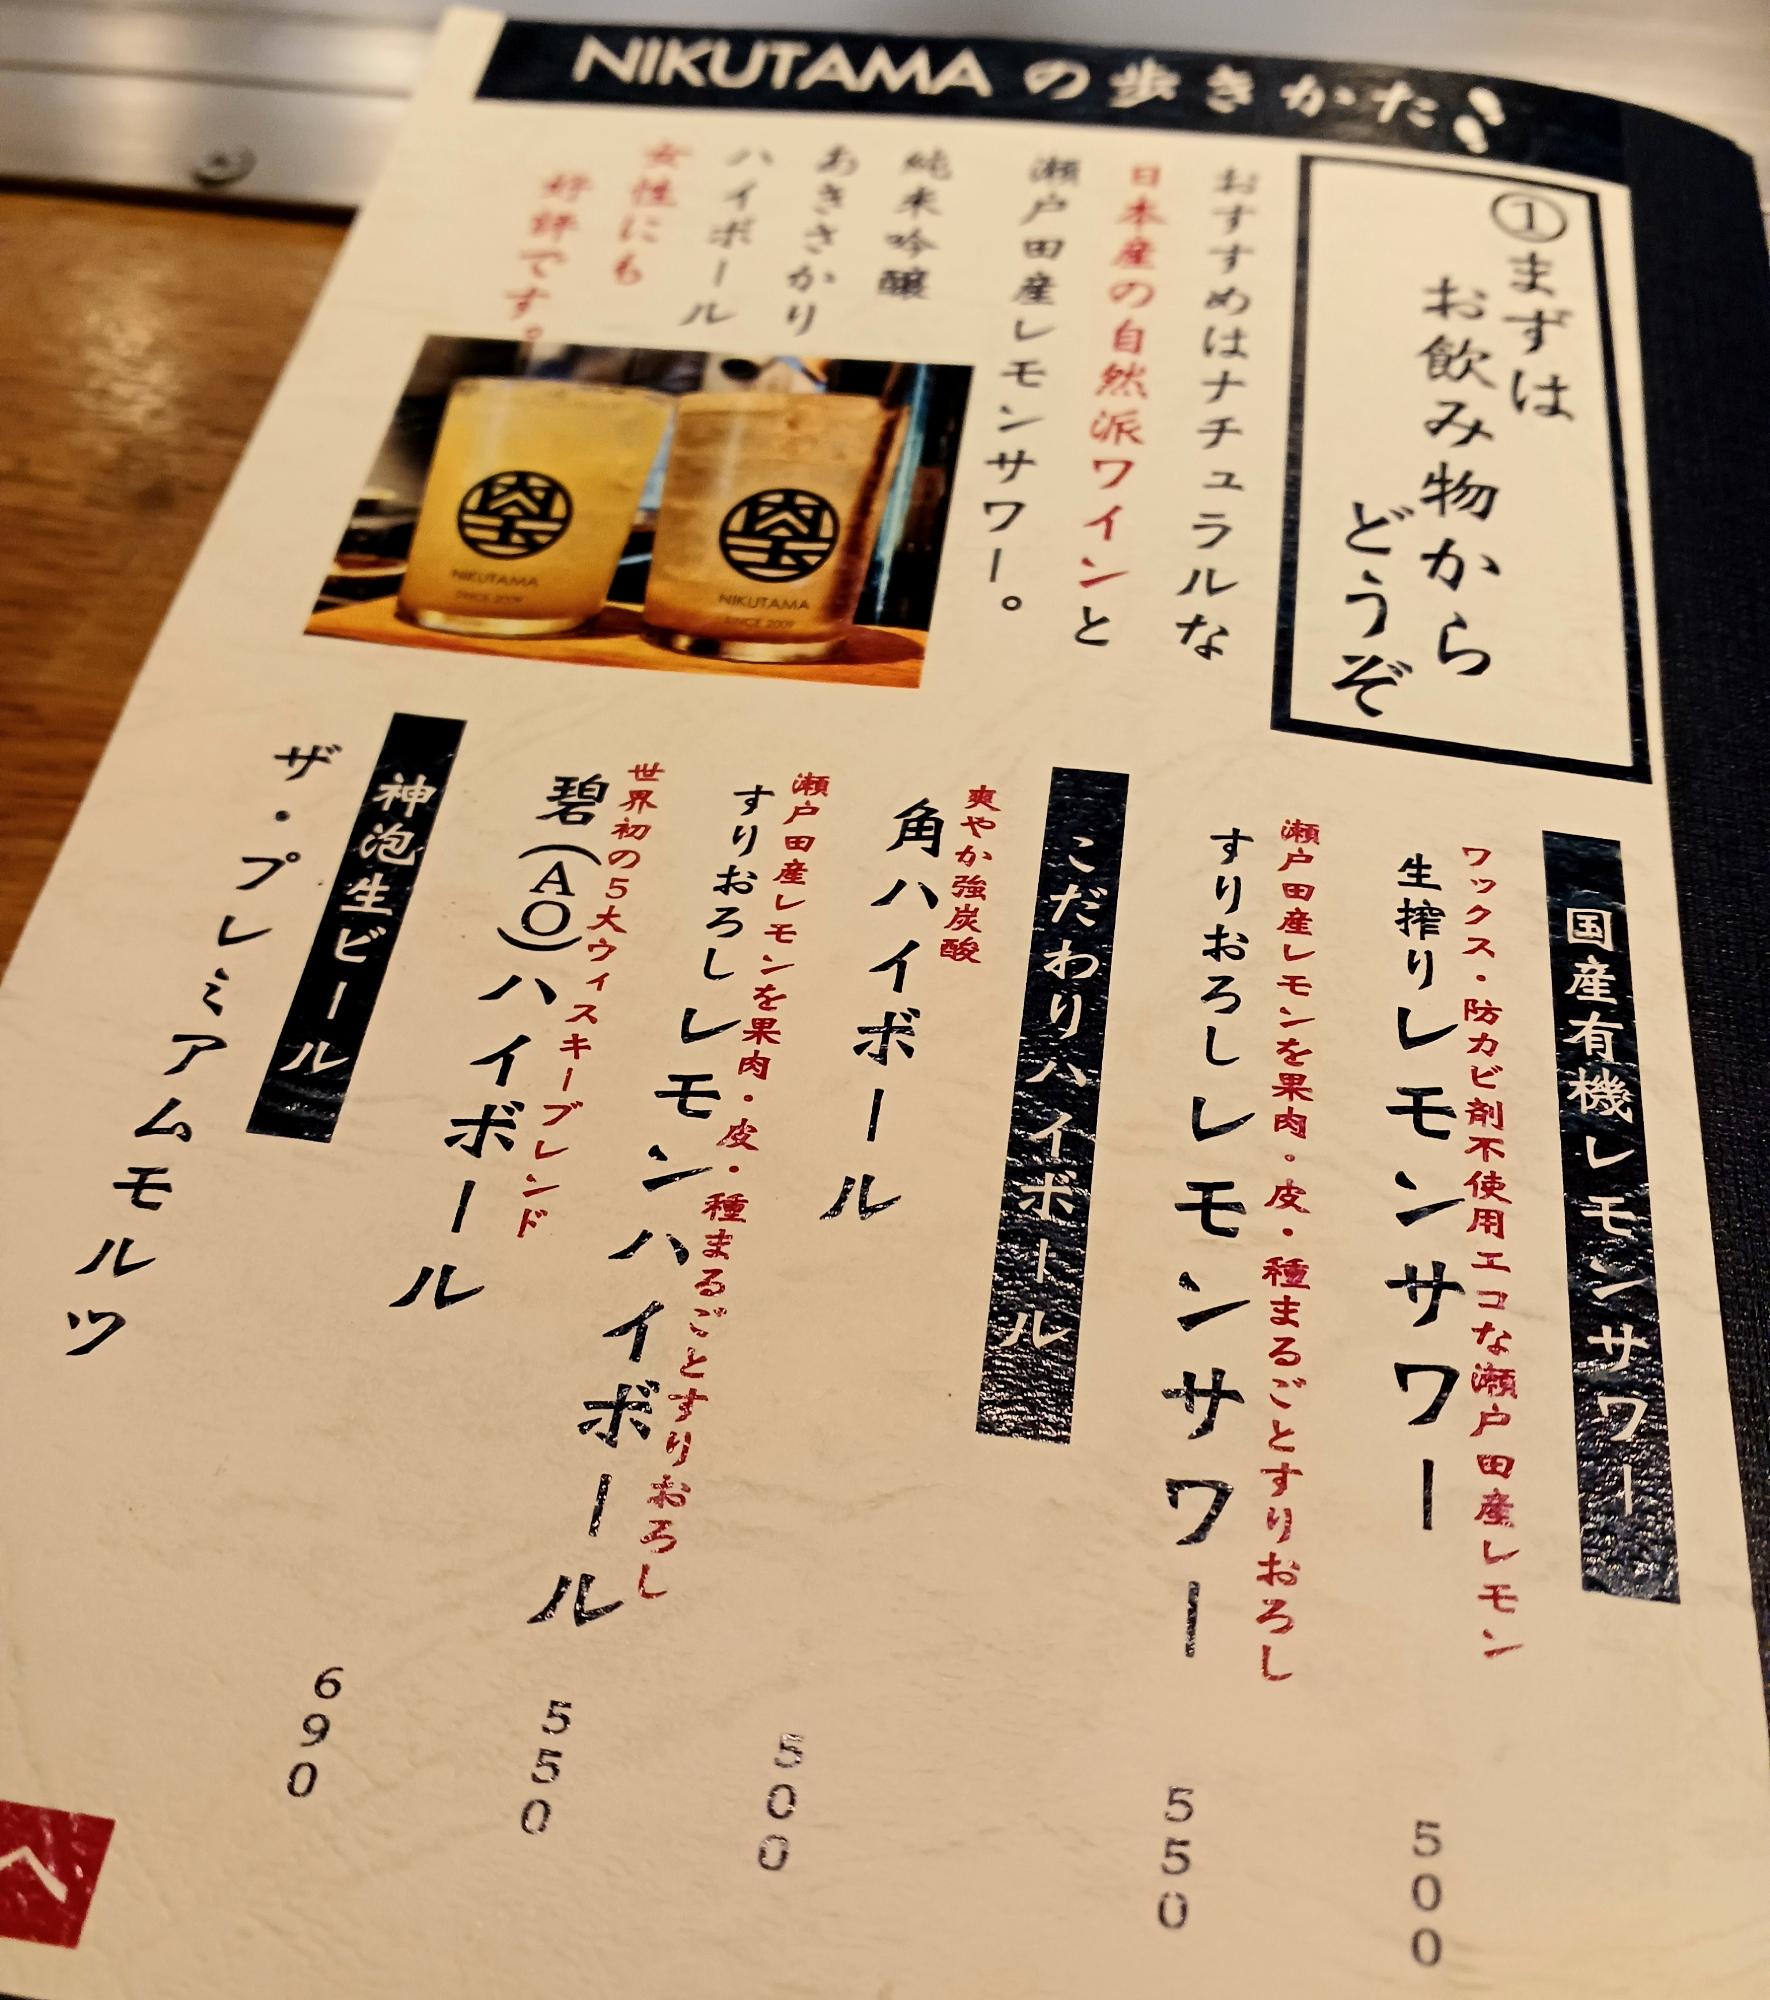 NIKUTAMA の歩きかた
①まずは
お飲み物から
どうぞ
おすすめはナチュラルな
日本産の自然派ワインと
瀬戸田産レモンサワー。
純米吟醸
あきさかり
ハイボール
女性にも
好評です。
肉玉
NIKUTAMA
SINCE 2009
肉玉
NIKUTAMA
SINCE 2009
国産有機レモンサワー
ワックス・防カビ剤不使用エコな瀬戸田産レモン
生搾りレモンサワー 500
瀬戸田産レモンを果肉・皮・種まるごとすりおろし
すりおろしレモンサワー 550
こだわりハイボール
爽やか強炭酸
角ハイボール 500
瀬戸田産レモンを果肉・皮・種まるごとすりおろし
すりおろしレモンハイボール 550
世界初の5大ウィスキーブレンド
碧(AO)ハイボール 690
神泡生ビール
ザ・プレミアムモルツ